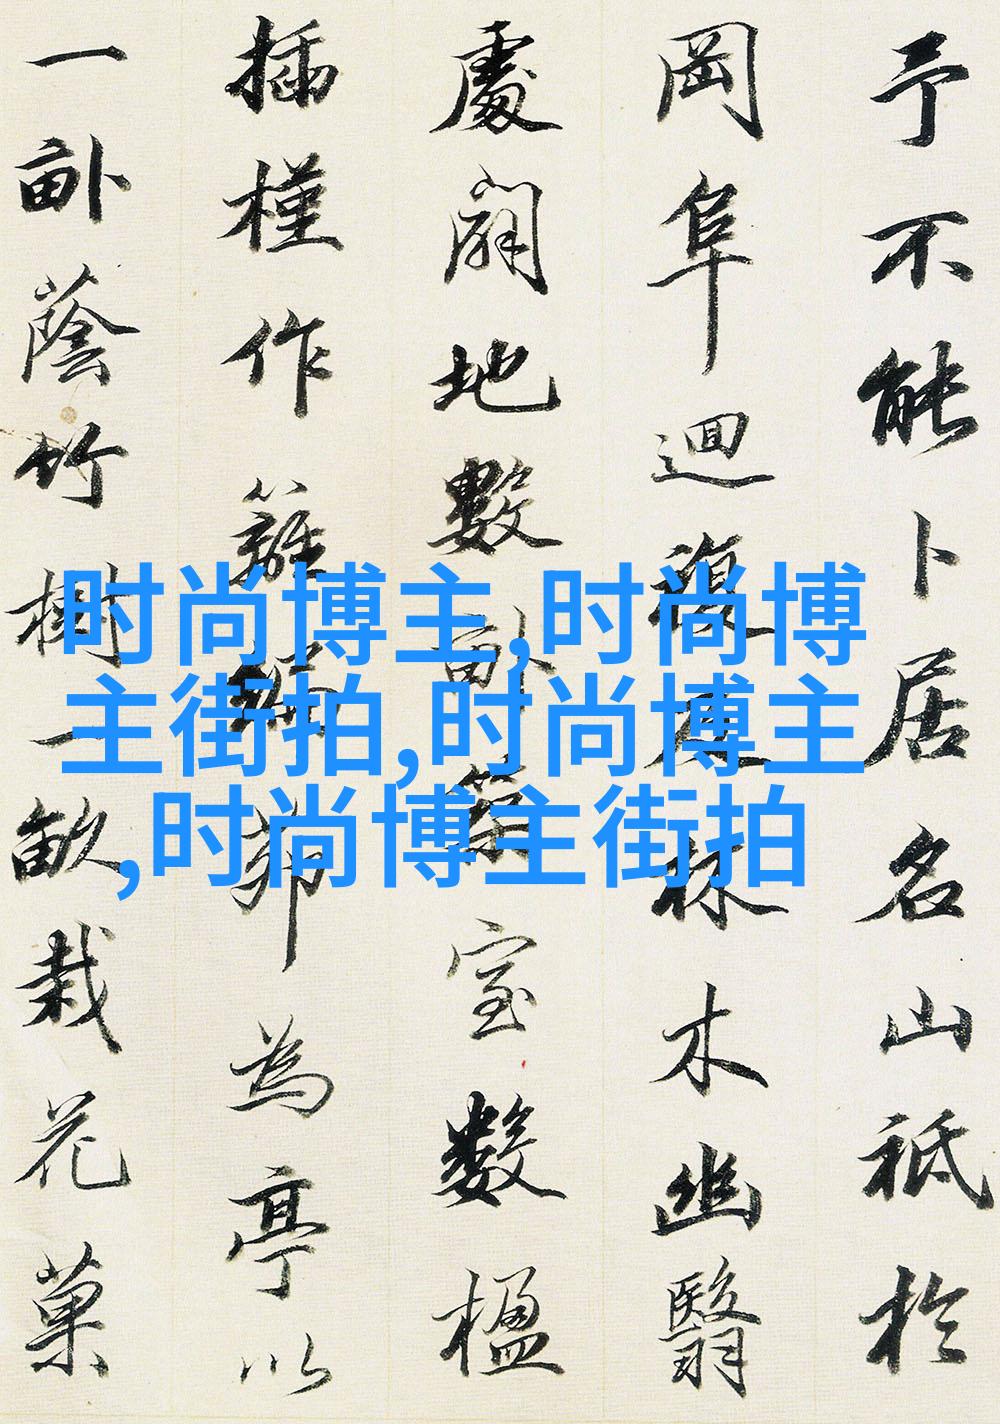 予不能卜居名山祗於
岡阜迴複及林木幽翳
處闢地數畝築室數楹
插槿作籬編茆為亭以
一畝蔭竹樹一畝栽花菓
时尚博主,时尚博
主街拍,时尚博主
,时尚博主街拍